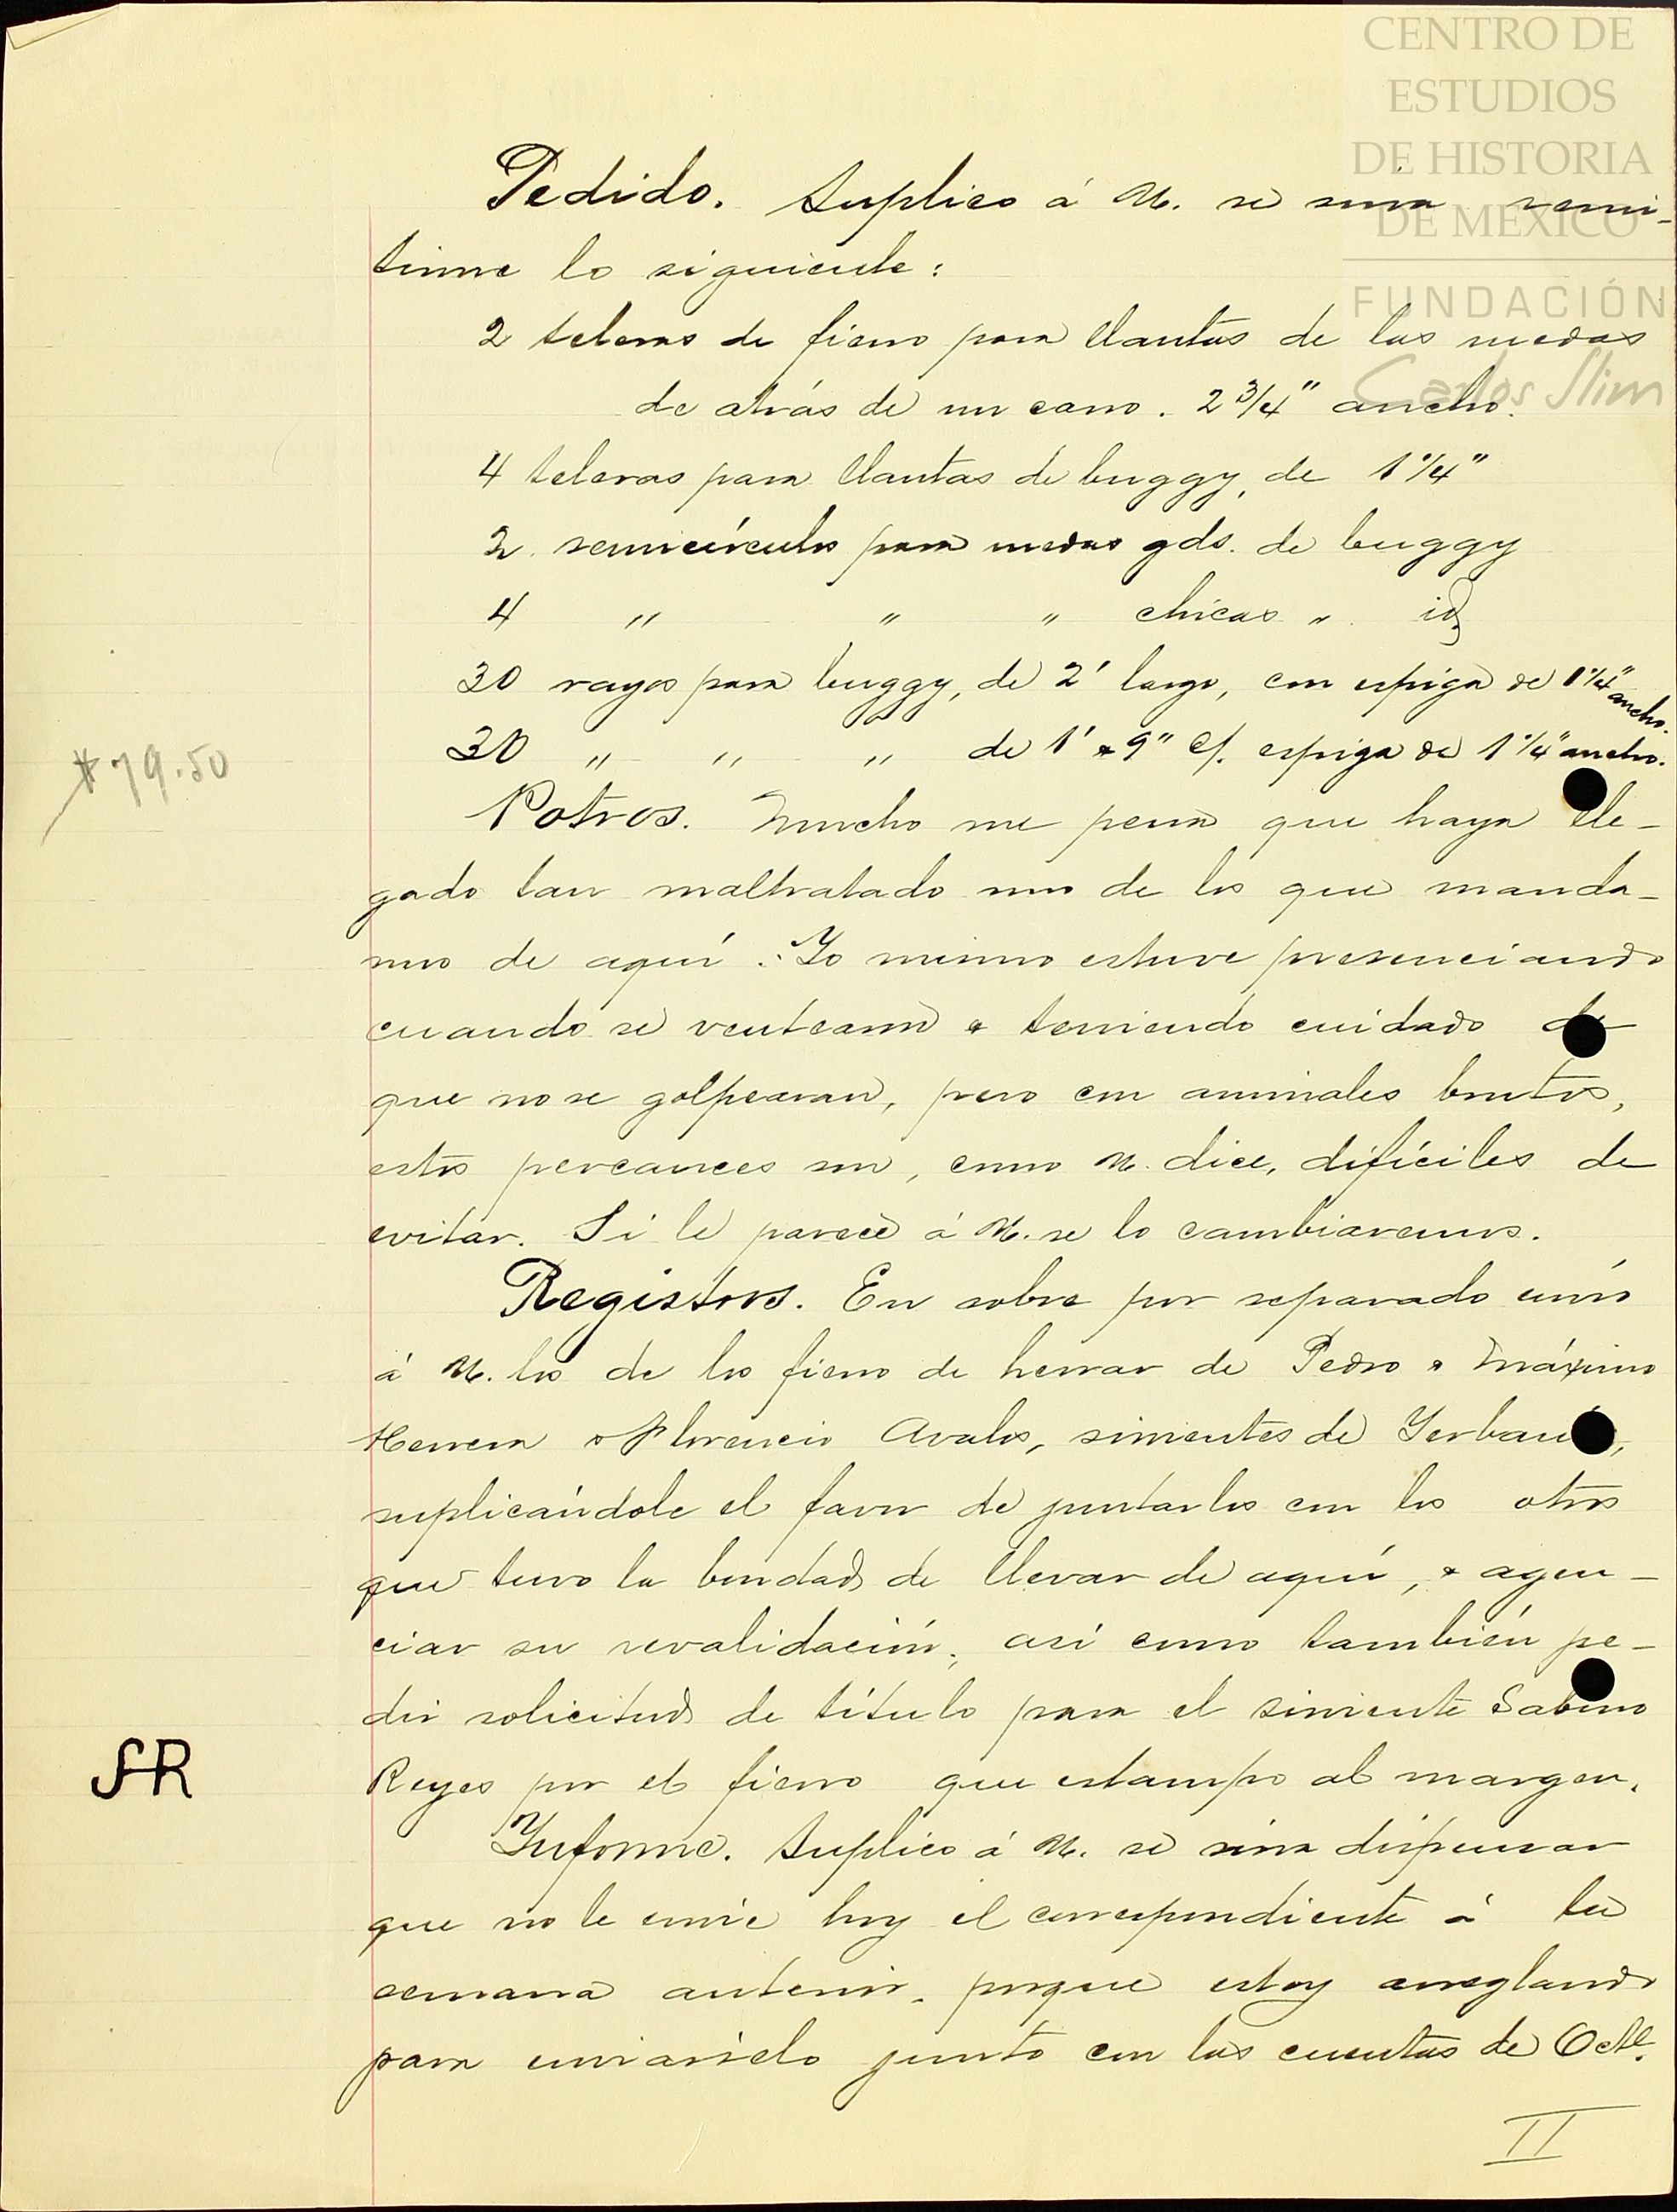 CENTRO DE
ESTUDIOS
DE HISTORIA
DE MÉXICO
FUNDACIÓN
Carlos Slim
Pedido. Suplico á U. se sirva remi-
tirme lo siguiente:
2 teleras de fierro para llantas de las ruedas
de atrás de un carro. 2 3/4" ancho.
4 teleras para llantas de buggy, de 1 1/4"
2 semicírculos para ruedas gds. de buggy
4 " " " chicas " id.
30 rayos para buggy, de 2' largo, con espiga de 1 1/4" ancho.
30 " " " de 1' & 9" c/. espiga de 1 1/4" ancho.
$79.50
Potros. Mucho me pena que haya lle-
gado tan maltratado uno de los que manda-
mos de aquí. Yo mismo estuve presenciando
cuando se ventearon & teniendo cuidado de
que no se golpearan, pero con animales brutos,
estos percances son, como U. dice, difíciles de
evitar. Si le parece á U. se lo cambiaremos.
Registros. En sobre por separado envío
á U. los de los fierro de herrar de Pedro & Máximo
Herrera & Florencio Avalos, sirvientes de Yerbanís,
suplicándole el favor de juntarlos con los otros
que tuvo la bondad de llevar de aquí, & agen-
ciar su revalidación, así como también pe-
dir solicitud de título para el sirviente Sabino
Reyes por el fierro que estampo al margen.
SR
Informe. Suplico á U. se sirva dispensar
que no le envíe hoy el correspondiente á la
semana anterior, porque estoy arreglando
para enviárselo junto con las cuentas de Octe.
II